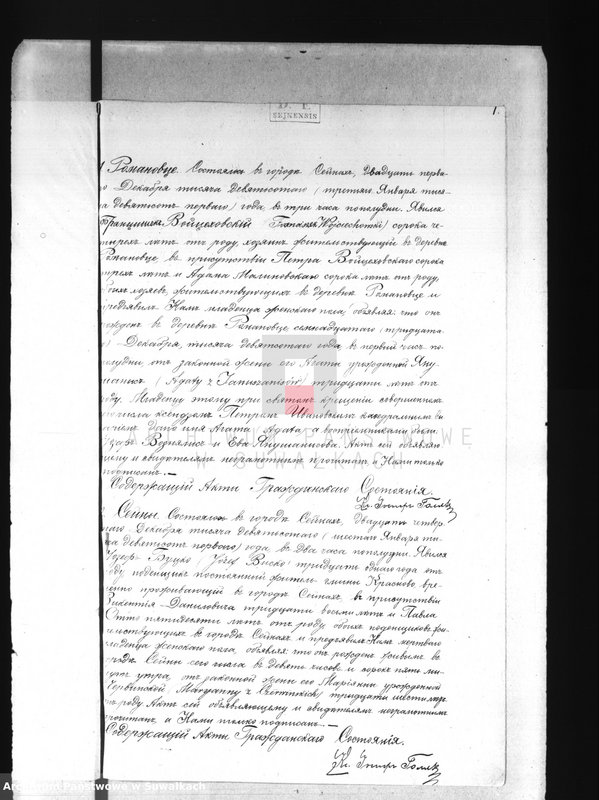 1.
SEJNENSIS
Романовце. Состоялось въ городѣ Сейнахъ, двадцать перва-
го Декабря тысяча девятисотаго (третьяго Января тыся-
ча девятьсотъ перваго) года въ три часа пополудни. Явился
Францишекъ Войцеховскій (Franciszek Wojciechowski) сорока че-
тырехъ лѣтъ отъ роду, хозяинъ жительствующій въ деревнѣ
Романовце въ присутствіи Петра Войцеховскаго сорока
трехъ лѣтъ и Адама Малиновскаго сорока лѣтъ отъ роду,
обоихъ хозяевъ, жительствующихъ въ деревнѣ Романовце и
предъявилъ Намъ младенца женскаго пола, объявляя, что онъ
рожденъ въ деревнѣ Романовце семнадцатаго (тридцата-
го) Декабря, тысяча девятисотаго года, въ первый часъ по-
полудни, отъ законной жены его Агаты урожденной Яну-
(Agaty z) тридцати лѣтъ отъ
роду. Младенцу этому при святомъ крещеніи совершенномъ
ксендзомъ Петромъ
дано имя Агата Agata, а воспріемниками были
и Ева Акт сей объявляю-
щему и свидѣтелямъ неграмотнымъ прочитанъ, и Нами только
подписанъ.—
Содержащій Акты Гражданскаго Состоянія.
Сейны. Состоялось въ городѣ Сейнахъ, двадцать четвер-
таго Декабря тысяча девятисотаго (шестаго Января ты-
сяча девятьсотъ перваго) года, въ два часа пополудни. Явился
Буцко (Józef Bucko) тридцати одного года отъ
роду поденщикъ постоянный житель гмины Красново, вре-
менно проживающій въ городѣ Сейнахъ, въ присутствіи
Викентія Даниловича тридцати восьми лѣтъ и Павла
Отто пятидесяти лѣтъ отъ роду, обоихъ поденщиковъ, жи-
тельствующихъ въ городѣ Сейнахъ и предъявилъ Намъ мертваго
младенца женскаго пола, объявляя, что онъ рожденъ въ
городѣ Сейны сего числа въ девять часовъ и сорокъ пять ми-
нутъ утра, отъ законной жены его Маріянны урожденной
(Maryanny z) тридцати шести лѣтъ
отъ роду. Актъ сей объявляющему и свидѣтелямъ неграмотнымъ
прочитанъ, и Нами только подписанъ.—
Содержащій Акты Гражданскаго Состоянія.
Archiwum Państwowe w Suwałkach